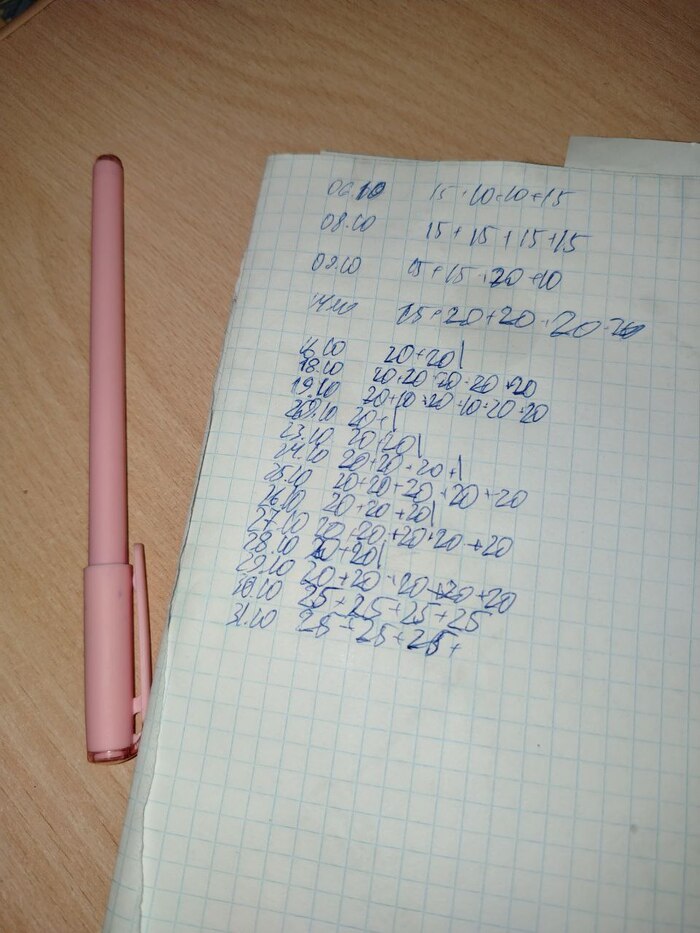 06.10 15+10+10+15
08.10 15+15+15+15
09.10 15+15+20+10
14.10 15+20+20+20+20
16.10 20+20|
18.10 20+20+20+20+20
19.10 20+10+20+10+20+20
20+|
23.10 20+20|
24.10 20+20+20+|
25.10 20+20+20+20+20
26.10 20+20+20|
27.10 20+20+20+20+20
28.10 20+20|
29.10 20+20+20+20+20
30.10 25+25+25+25
31.10 25+25+25+